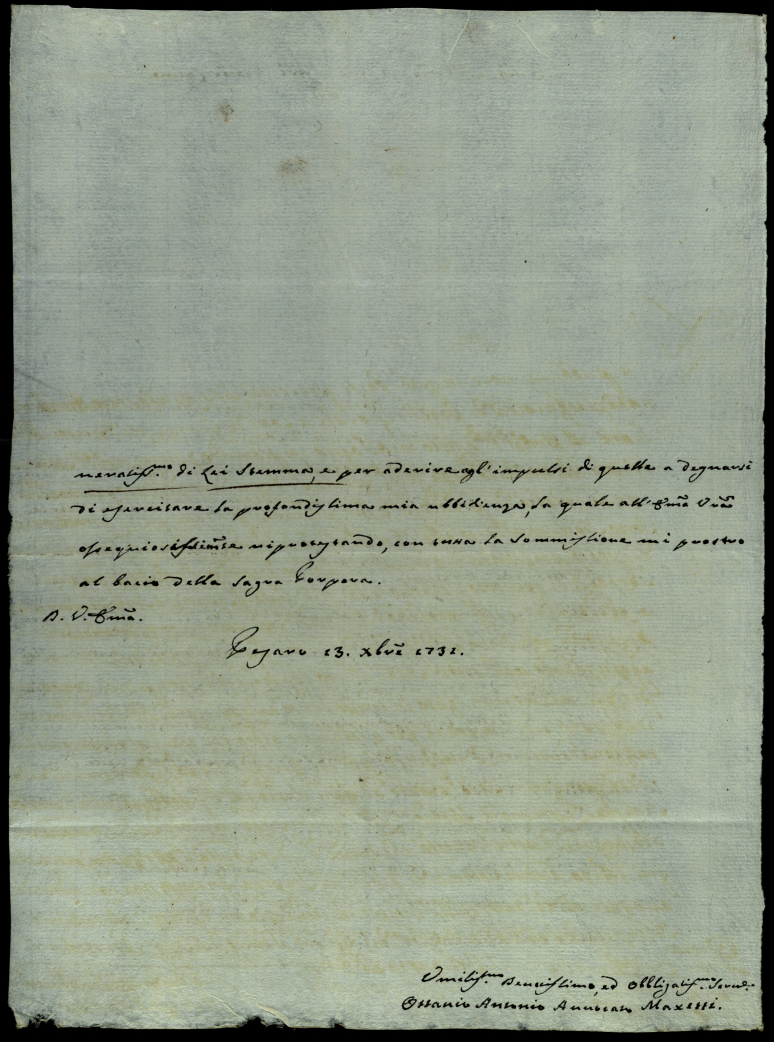 neratiss.mo di Lei Stemma, e per aderire agl'impulsi di quelle a degnarsi
di esercitare la profondissima mia ubbidienza, la quale all'Emã Vrã
ossequiosissimamte riprotestando, con tutta la sommissione mi prostro
al bacio della Sagra Porpora.
D. V. Emã.
Pesaro 13. Xbrẽ 1731.
Umiliss.mo Devotissimo, ed Obbligatiss.mo Servd.e
Ottavio Antonio Avvocato